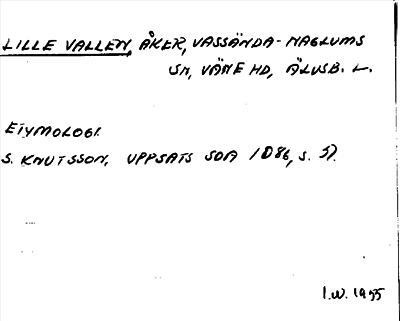 LILLE VALLEN, ÅKER, VASSÄNDA-NAGLUMS
SN, VÄNE HD, ÄLVSB. L.
ETYMOLOGI.
S. KNUTSSON, UPPSATS SOA 1086, S. 37.
I.W. 1955